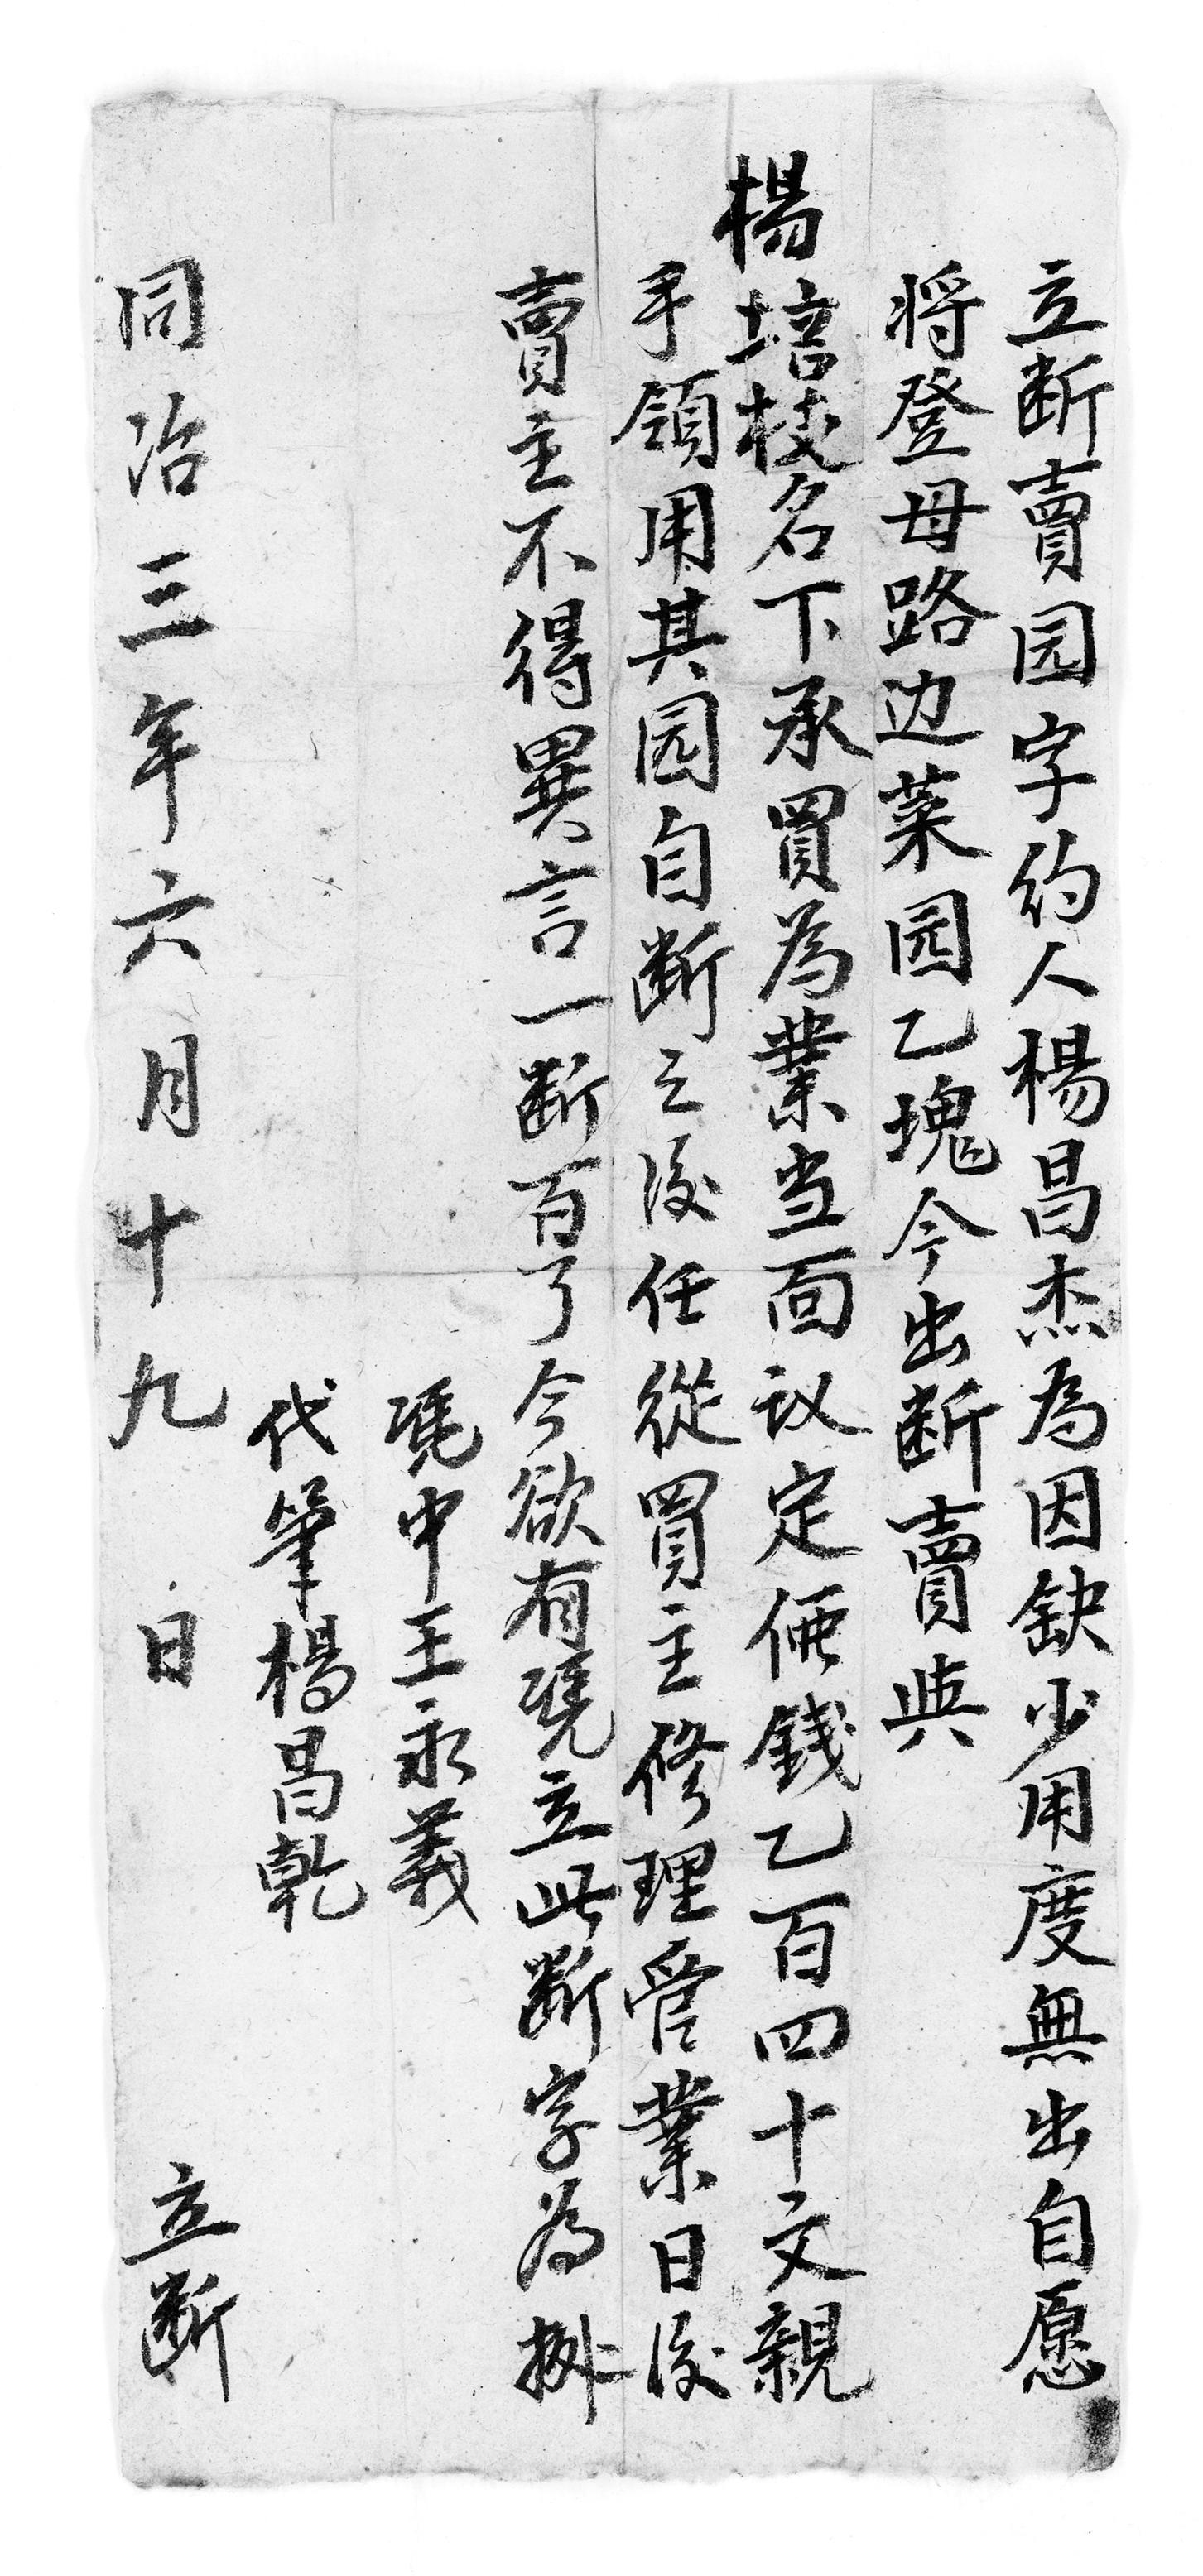 立断賣园字約人楊昌杰為因缺少用度無出自愿
将登母路边菜园乙塊今出断賣與
楊培枝名下承買為業当面议定価錢乙百四十文親
手領用其园自断之後任從買主修理管業日後
賣主不得異言一断百了今欲有凭立此断字為拠
凭中王永義
代筆楊昌乾
同治三年六月十九日 立断